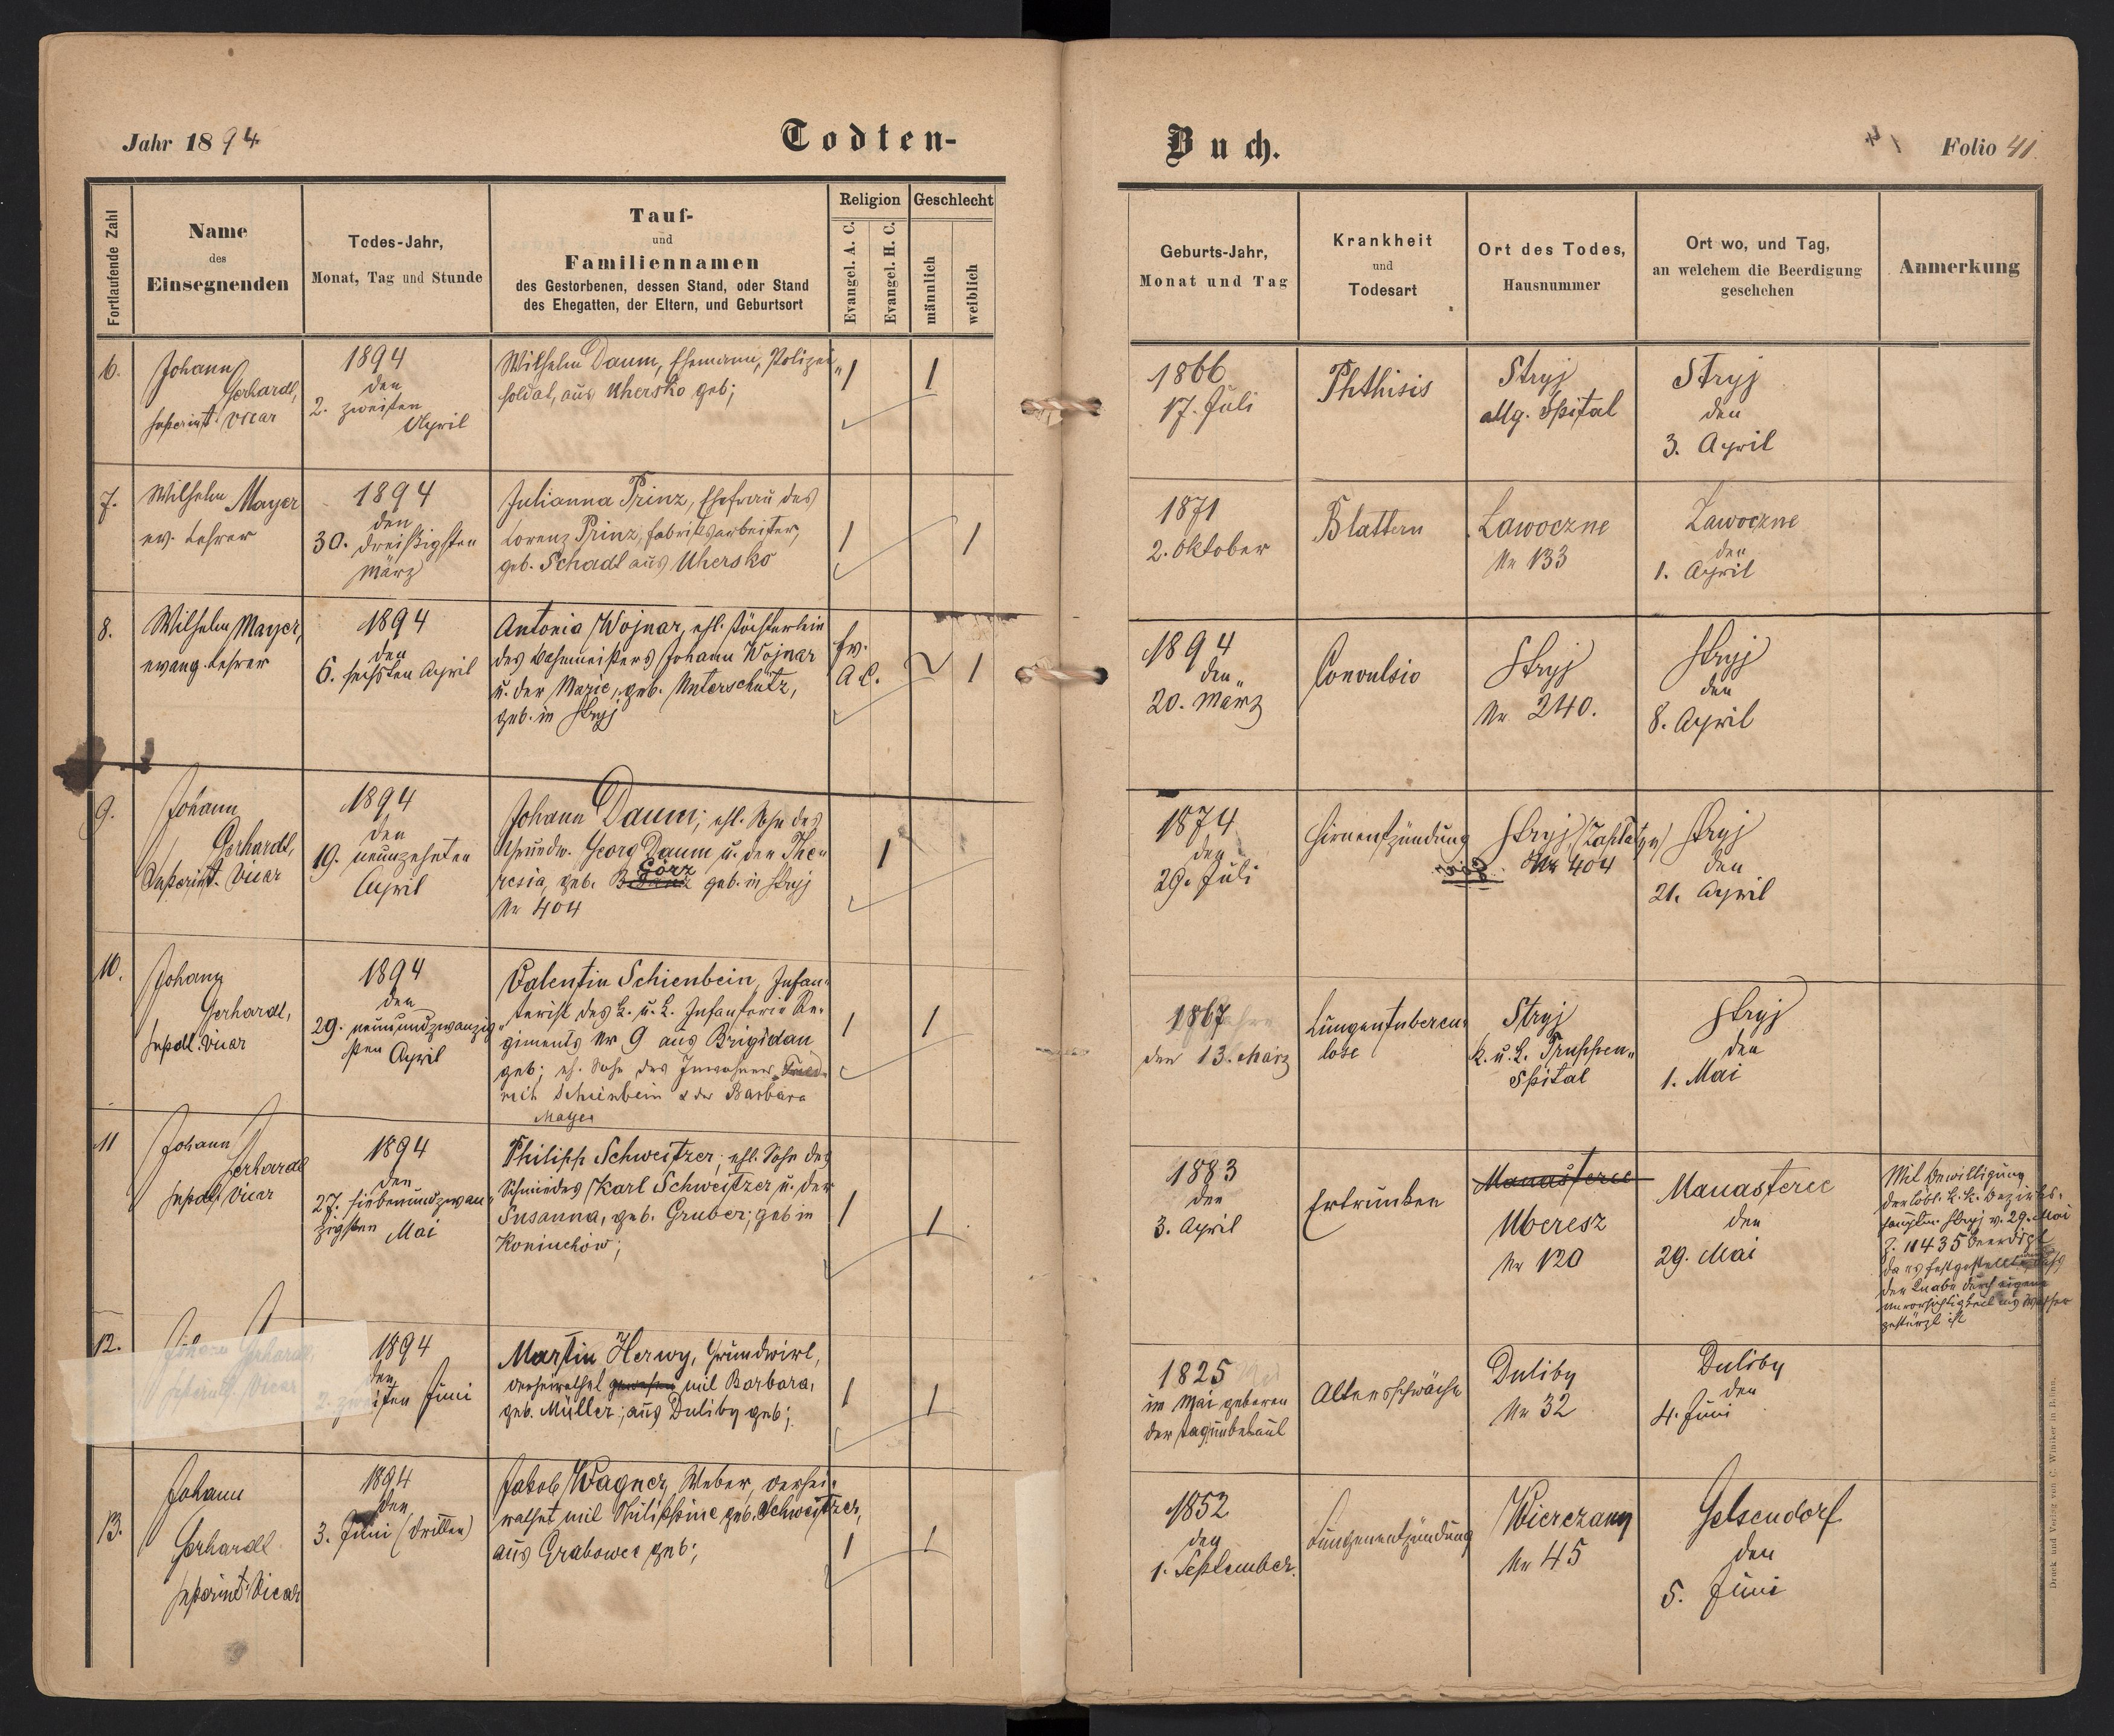 Jahr 1894
Todten-
Buch.
Folio 41.
Fortlaufende Zahl
Name
des
Einsegnenden
Todes-Jahr,
Monat, Tag und Stunde
Tauf-
und
Familiennamen
des Gestorbenen, dessen Stand, oder Stand
des Ehegatten, der Eltern, und Geburtsort
Religion
Evangel. A. C.
Evangel. H. C.
Geschlecht
männlich
weiblich
Geburts-Jahr,
Monat und Tag
Krankheit
und
Todesart
Ort des Todes,
Hausnummer
Ort wo, und Tag,
an welchem die Beerdigung
geschehen
Anmerkung
6.
Johann
Gerhardt,
Superint. Vicar
1894
den
2. zweiten
April
Wilhelm Daum, Ehemann, Polizei-
soldat, aus Uhersko geb;
1
1
1866
17. Juli
Phthisis
Stryj
allg. Spital
Stryj
den
3. April
7.
Wilhelm Mayer
ev. Lehrer
1894
den
30. dreißigsten
März
Julianna Prinz, Ehefrau des
Lorenz Prinz, Fabriksarbeiter,
geb. Schadt aus Uhersko
1
1
1871
2. Oktober
Blattern
Lawoczne
Nr 133
Lawoczne
den
1. April
8.
Wilhelm Mayer,
evang. Lehrer
1894
den
6. sechsten April
Antonia Wojnar, ehl. Töchterlein
des Bahnmeisters Johann Wojnar
u. der Marie, geb. Unterschütz,
geb. in Stryj
Ev.
A. C.
1
1894
den
20. März
Convulsio
Stryj
Nr 240.
Stryj
den
8. April
9.
Johann
Gerhardt,
Superint. Vicar
1894
den
19. neunzehnten
April
Johann Daum; ehl. Sohn des
Grundw. Georg Daum u. der The-
resia, geb. Görz geb. in Stryj
Nr 404
1
1874
den
29. Juli
Hirnentzündung
Stryj
Nr 404
Stryj
den
21. April
10.
Johann
Gerhardt,
Supdt. Vicar
1894
den
29. neunundzwanzig-
sten April
Valentin Schienbein, Infan-
terist des k. u. k. Infanterie Re-
giments Nr 9 aus Brigidau
geb; eh. Sohn des Inwohners Fried-
rich Schienbein & der Barbara
Mayer
1
1
1867
den 13. März
Lungentubercu-
lose
Stryj
k. u. k. Truppen-
Spital
Stryj
den
1. Mai
11
Johann
Gerhardt
Supdt. Vicar
1894
den
27. siebenundzwan-
zigsten Mai
Philipp Schweitzer; ehl. Sohn des
Schmiedes Karl Schweitzer u. der
Susanna, geb. Gruber; geb in
Koniuchów;
1
1
1883
den
3. April
Ertrunken
Manasterec
Uberesz
Nr 120
Manasterec
den
29. Mai
Mit Bewilligung
der löbl. k. k. Bezirks-
hauptm. Stryj v. 29. Mai
Z. 11435 beerdigt
da es festgestellt daß
der Knabe durch eigene
Unvorsichtigkeit ins Wasser
gestürzt ist
12.
Johann Gerhardt,
Superint. Vicar
1894
den
2. zweiten Juni
Martin Herwy, Grundwirt,
verheirathet gewesen mit Barbara,
geb. Müller; aus Duliby geb;
1
1
1825
im Mai geboren
der Tag unbekant
Altersschwäche
Duliby
Nr 32
Duliby
den
4. Juni
13.
Johann
Gerhardt
Superint. Vicar
1894
den
3. Juni (dritten)
Jakob Wagner, Weber, verhei-
rathet mit Philippine geb. Schweitzer,
aus Grabowce geb;
1
1
1852
den
1. September.
Lungenentzündung
Wierczany
Nr 45
Gelsendorf
den
5. Juni
Druck und Verlag von C. Winiker in Brünn.